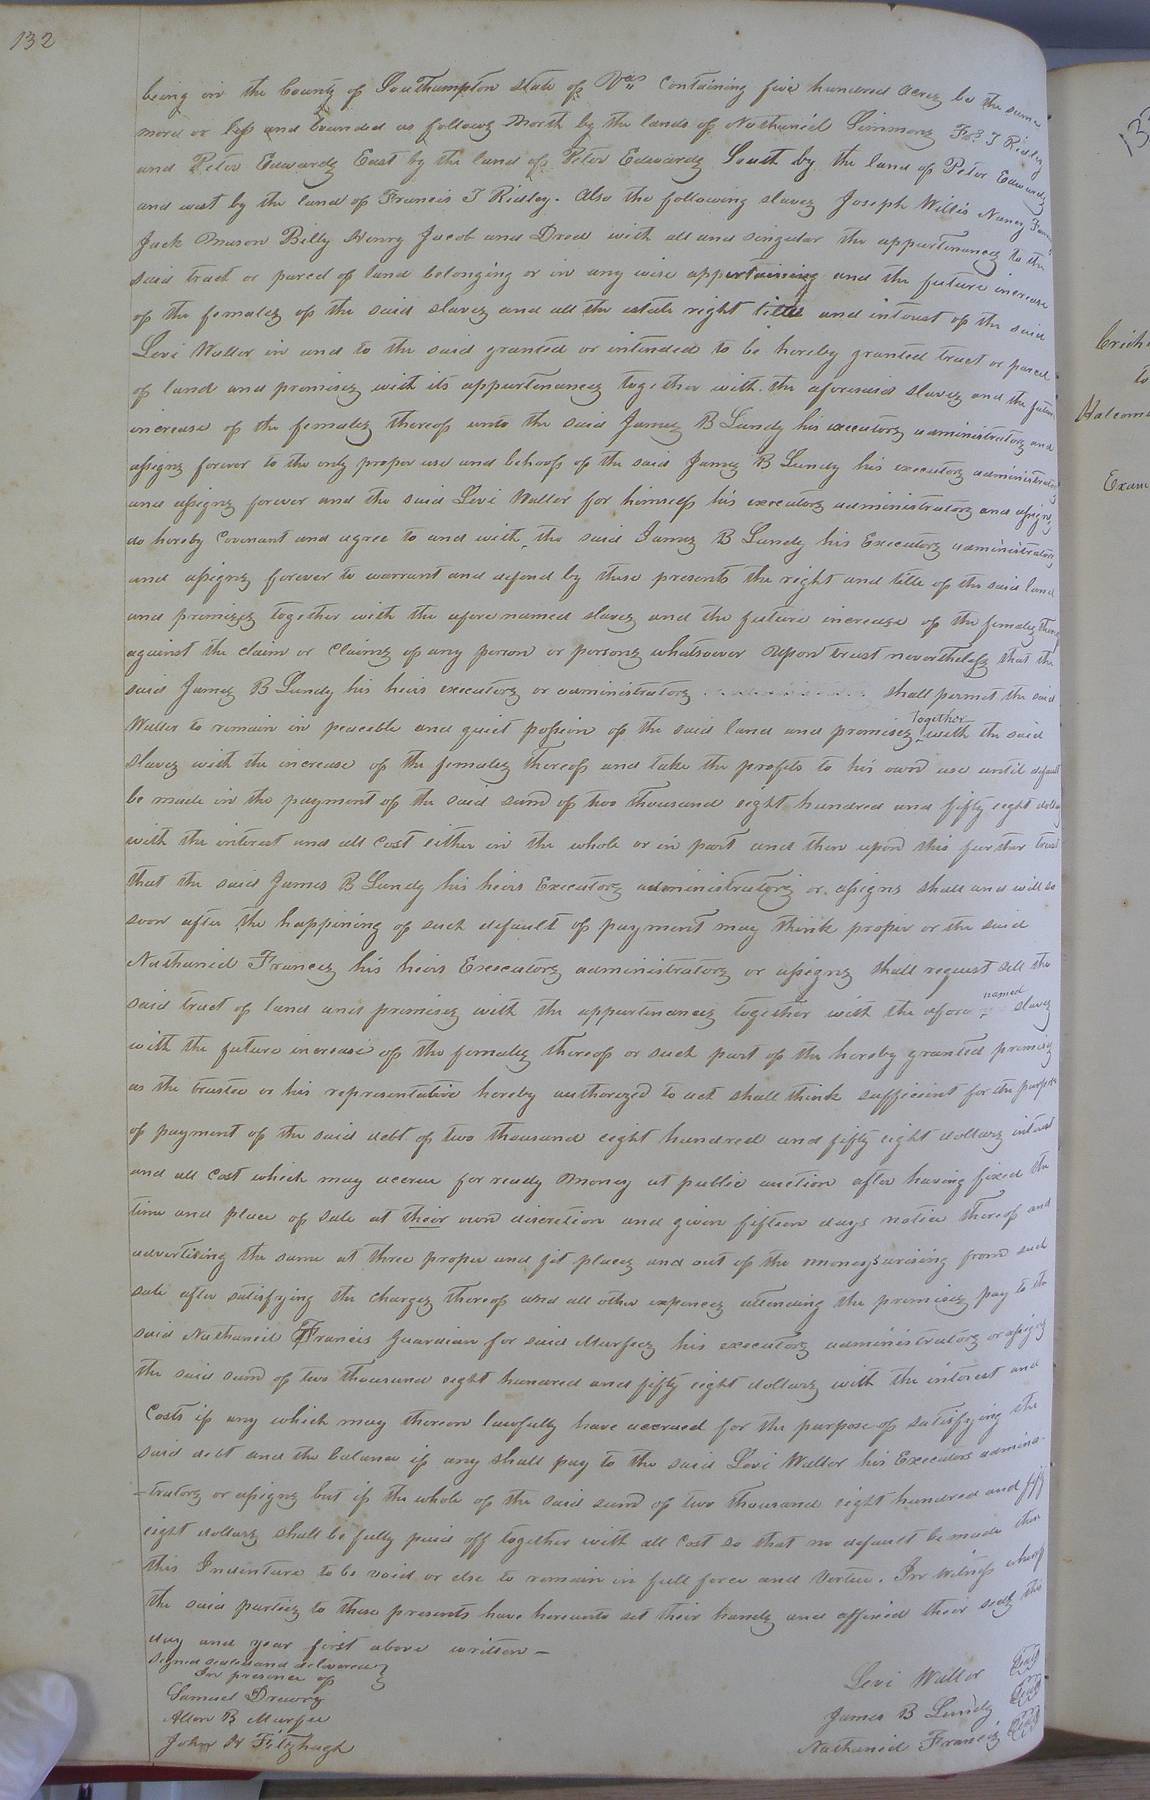 132
being in the County of Southampton state of Vaa containing five hundred acres be the same
more or less and bounded as follows North by the lands of Nathaniel Simmons Fs. T Ridley
and Peter Edwards East by the land of Peter Edwards South by the land of Peter Edwards
and west by the land of Francis T Ridley. Also the following slaves Joseph Willis Nancy
Jack Mason Billy Henry Jacob and Dred with all and singular the appurtenances to the
said tract or parcel of land belonging or in any wise appertaining and the future increase
of the females of the said slaves and all the estate right title and interest of the said
Levi Waller in and to the said granted or intended to be hereby granted tract or parcel
of land and premises with its appurtenances together with the aforesaid slaves and the future
increase of the females thereof unto the said James B Lundy his executors administrators and
assigns forever to the only proper use and behoof of the said James B Lundy his executors administrators
and assigns forever and the said Levi Waller for himself his executors administrators and assigns
do hereby Covenant and agree to and with the said James B Lundy his Executors administrators
and assigns forever to warrant and defend by these presents the right and title of the said land
and premises together with the afore named slaves and the future increase of the females thereof
against the claim or claims of any person or persons whatsoever Upon trust nevertheless that the
said James B Lundy his heirs executors or administrators shall permit the said
Waller to remain in peaceble and quiet possion of the said land and premises together with the said
slaves with the increase of the females thereof and take the profits to his own use until default
be made in the payment of the said sum of two thousand eight hundred and fifty eight dollars
with the interest and all cost either in the whole or in part and then upon this further trust
that the said James B Lundy his heirs Executors administrators or assigns shall and will so
soon after the happining of such default of payment may think proper or the said
Nathaniel Francis his heirs Executors administrators or assigns shall request sell the
said tract of land and premises with the appurtenances together with the afore named slaves
with the future increase of the females thereof or such part of the hereby granted premises
as the trustee or his representative hereby authorized to act shall think sufficient for the purpose
of payment of the said debt of two thousand eight hundred and fifty eight dollars interest
and all cost which may accrue for ready money at public auction after having fixed the
time and place of sale at their own discretion and given fifteen days notice thereof and
advertising the same at three proper and fit places and out of the moneys arising from such
sale after satisfying the charges thereof and all other expences attending the premises pay to the
said Nathaniel Francis Guardian for said Murfees his executors administrators or assigns
the said sum of two thousand eight hundred and fifty eight dollars with the interest and
Costs if any which may thereon lawfully have accrued for the purpose of satisfying the
said debt and the balance if any shall pay to the said Levi Waller his Executors adminis-
-trators or assigns but if the whole of the said sum of two thousand eight hundred and fifty
eight dollars shall be fully paid off together with all Cost so that no default be made then
this Indenture to be void or else to remain in full force and virtue. In Witness whereof
the said parties to these presents have hereunto set their hands and affixed their seals the
day and year first above written -
Signed sealed and delivered
In presence of
Samuel Drewry
Allen B Murfee
John H Fitzhugh
Levi Waller Seal
James B Lundy Seal
Nathaniel Francis Seal
to
Exam